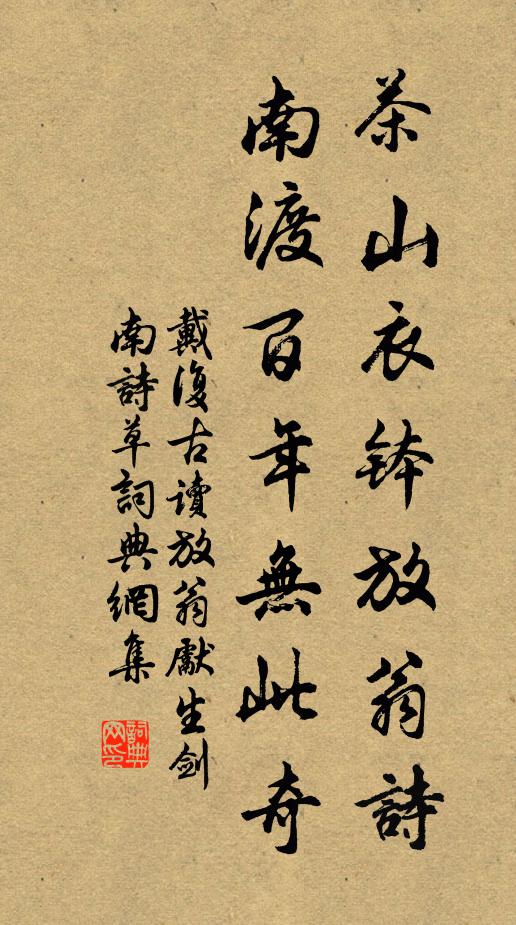 茶山衣鉢放翁詩
南渡百年無此奇
戴復古讀放翁獻生劍
南詩草詞典網集
詞典網印